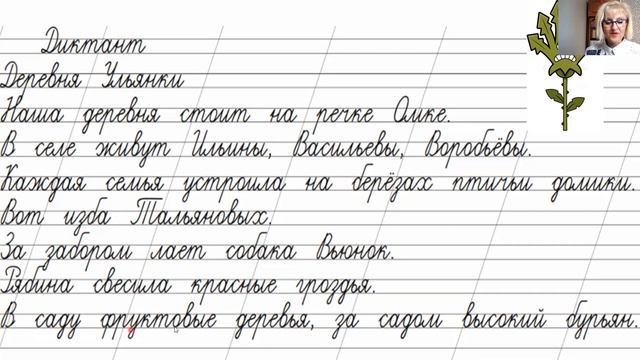 Диктант
Деревня Ульянки
Наша деревня стоит на речке Омке.
В селе живут Ильины, Васильевы, Воробьёвы.
Каждая семья устроила на берёзах птичьи домики.
Вот изба Тальяновых.
За забором лает собака Вьюнок.
Рябина свесила красные гроздья.
В саду фруктовые деревья, за садом высокий бурьян.